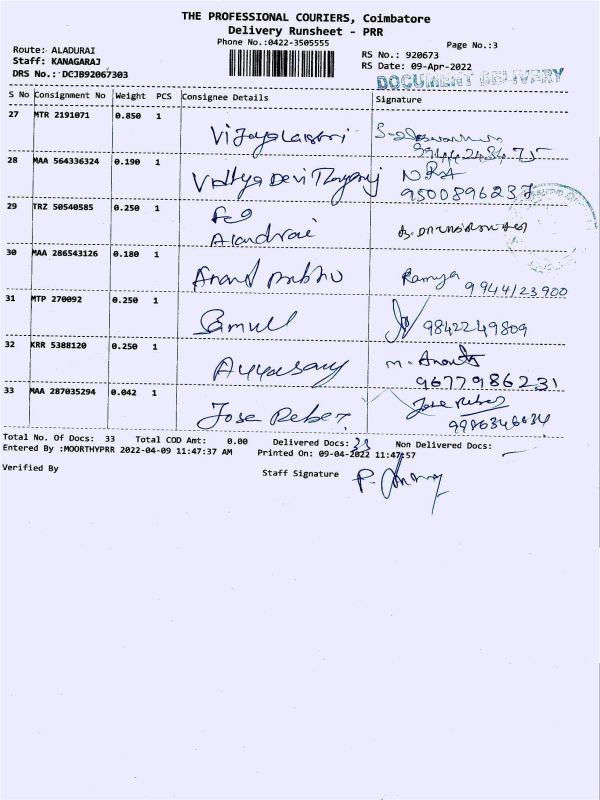 THE PROFESSIONAL COURIERS, Coimbatore
Delivery Runsheet - PRR
Phone No.:0422-3505555
Page No.:3
Route: ALADURAI
Staff: KANAGARAJ
DRS No.: DCJB92067303
RS No.: 920673
RS Date: 09-Apr-2022
DOCUMENT DELIVERY
S No Consignment No Weight PCS Consignee Details Signature
27 MTR 2191071 0.850 1 Vijayalaxmi
28 MAA 564336324 0.190 1 Vidhya Devi
9500896237
29 TRZ 50540585 0.250 1
30 MAA 286543126 0.180 1 Anand Prabhu Ramya
9944123900
31 MTP 270092 0.250 1 Samuel 9842249809
32 KRR 5388120 0.250 1 Ayyasamy M.
9677986231
33 MAA 287035294 0.042 1 Jose Reber Jose Reber
Total No. Of Docs: 33 Total COD Amt: 0.00 Delivered Docs: 33 Non Delivered Docs:
Entered By :MOORTHYPRR 2022-04-09 11:47:37 AM Printed On: 09-04-2022 11:47:57
Verified By Staff Signature